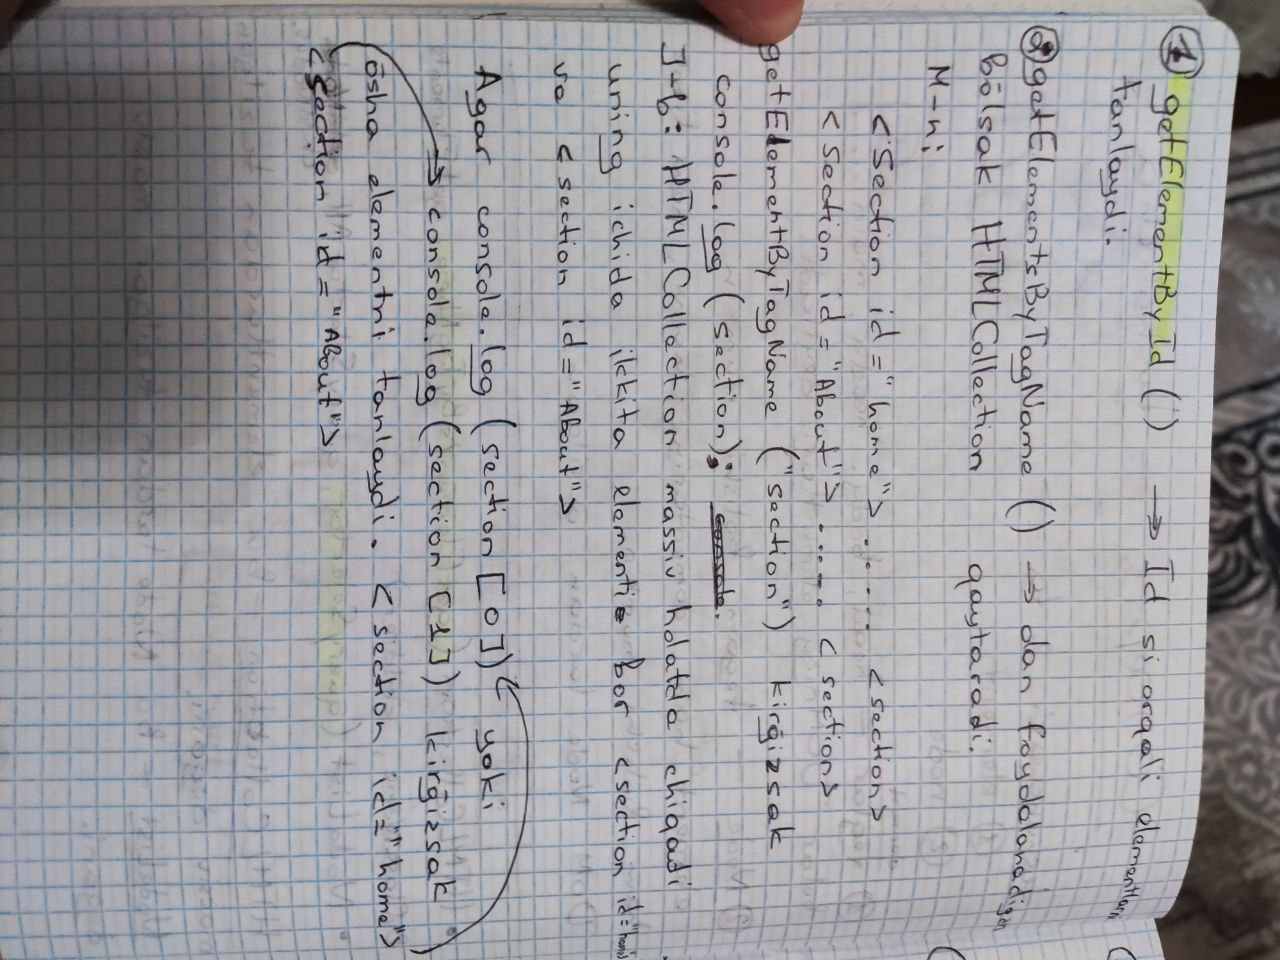 ① getElementById () → Id si orqali elementlarni
tanlaydi.
② getElementsByTagName () → dan foydalanadigan
bólsak HTMLCollection qaytaradi.
M-n:
<Section id="home"> ...... <section>
<section id="About"> ..... <section>
getElementByTagName ("section") kirgizsak
console.log (section);
J-b: HTMLCollection massiv holatda chiqadi
uning ichida ikkita elementi bor <section id="home">
va <section id="About">
Agar console.log (section [0]) yoki
console.log (section [1]) kirgizsak
ósha elementni tanlaydi. <section id="home">
<section id="About">